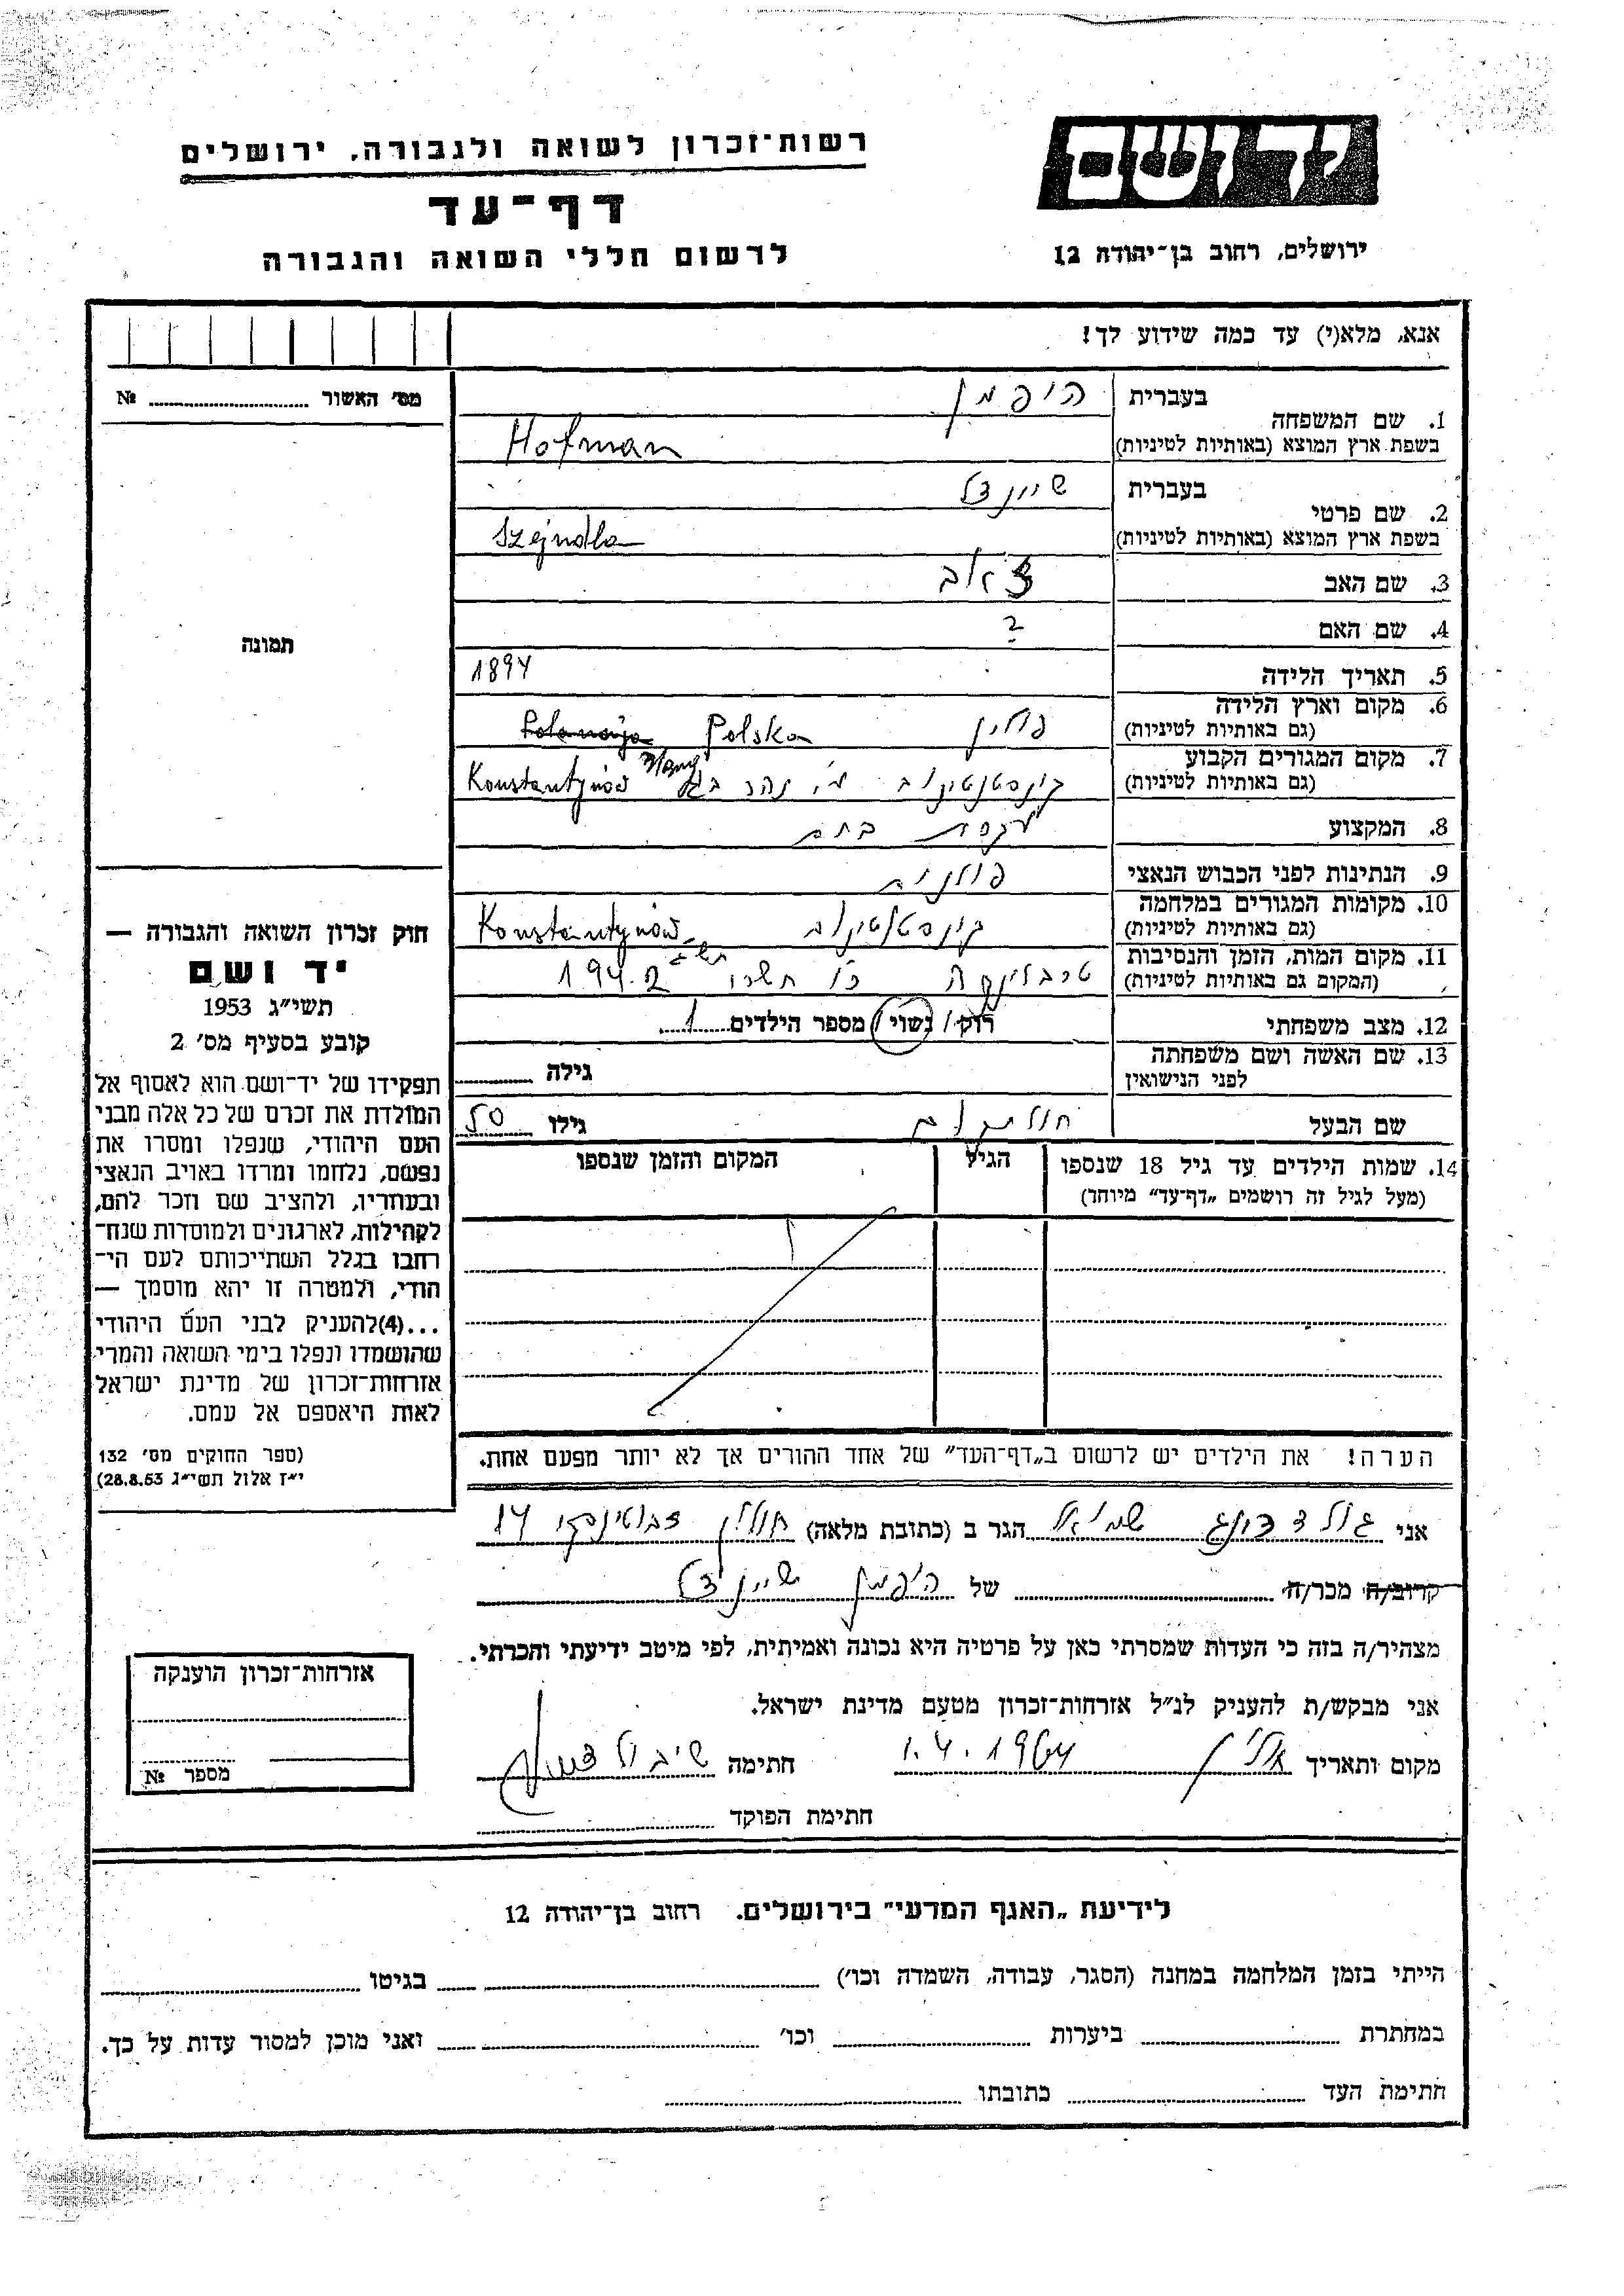 יד ושם
ירושלים, רחוב בן־יהודה 12
רשות־זכרון לשואה ולגבורה, ירושלים
דף־עד
לרשום חללי השואה והגבורה
אנא, מלא(י) עד כמה שידוע לך!
מס׳ האשור № 
1. שם המשפחה
בעברית הופמן
בשפת ארץ המוצא (באותיות לטיניות) Hofman
2. שם פרטי
בעברית שיינדל
בשפת ארץ המוצא (באותיות לטיניות) Szejndla
3. שם האב
4. שם האם ?
5. תאריך הלידה 1894
6. מקום וארץ הלידה
(גם באותיות לטיניות) פולין Polska
7. מקום המגורים הקבוע
(גם באותיות לטיניות) קונסטנטינוב נהר בוג Konstantynów
8. המקצוע עקרת בית
9. הנתינות לפני הכבוש הנאצי פולנית
10. מקומות המגורים במלחמה
(גם באותיות לטיניות) קונסטנטינוב Konstantynów
11. מקום המות, הזמן והנסיבות
(המקום גם באותיות לטיניות) טרבלינקה תשרי תש״ג 1942
12. מצב משפחתי רוק/נשוי/ מספר הילדים 1
13. שם האשה ושם משפחתה
לפני הנישואין גילה
שם הבעל גילו 50
14. שמות הילדים עד גיל 18 שנספו
(מעל לגיל זה רושמים „דף־עד״ מיוחד)
הגיל
המקום והזמן שנספו
הערה! את הילדים יש לרשום ב„דף־העד״ של אחד ההורים אך לא יותר מפעם אחת.
תמונה
חוק זכרון השואה והגבורה —
יד ושם
תשי״ג 1953
קובע בסעיף מס׳ 2
תפקידו של יד־ושם הוא לאסוף אל
המולדת את זכרם של כל אלה מבני
העם היהודי, שנפלו ומסרו את
נפשם, נלחמו ומרדו באויב הנאצי
ובעוזריו, ולהציב שם וזכר להם,
לקהילות, לארגונים ולמוסדות שנח־
רבו בגלל השתייכותם לעם הי־
הודי, ולמטרה זו יהא מוסמך —
...(4)להעניק לבני העם היהודי
שהושמדו ונפלו בימי השואה והמרי
אזרחות־זכרון של מדינת ישראל
לאות היאספם אל עמם.
(ספר החוקים מס׳ 132
י״ז אלול תשי״ג 28.8.53)
אני שמואל הגר ב (כתובת מלאה) חולון זבוטינסקי 14
קרוב/ה מכר/ה של הופמן שיינדל
מצהיר/ה בזה כי העדות שמסרתי כאן על פרטיה היא נכונה ואמיתית, לפי מיטב ידיעתי והכרתי.
אני מבקש/ת להעניק לנ״ל אזרחות־זכרון מטעם מדינת ישראל.
מקום ותאריך 1.4.1964 חתימה
חתימת הפוקד
אזרחות־זכרון הוענקה
מספר №
לידיעת „האגף המדעי״ בירושלים. רחוב בן־יהודה 12
הייתי בזמן המלחמה במחנה (הסגר, עבודה, השמדה וכו׳) בגיטו
במחתרת ביערות וכו׳ ואני מוכן למסור עדות על כך.
חתימת העד כתובתו